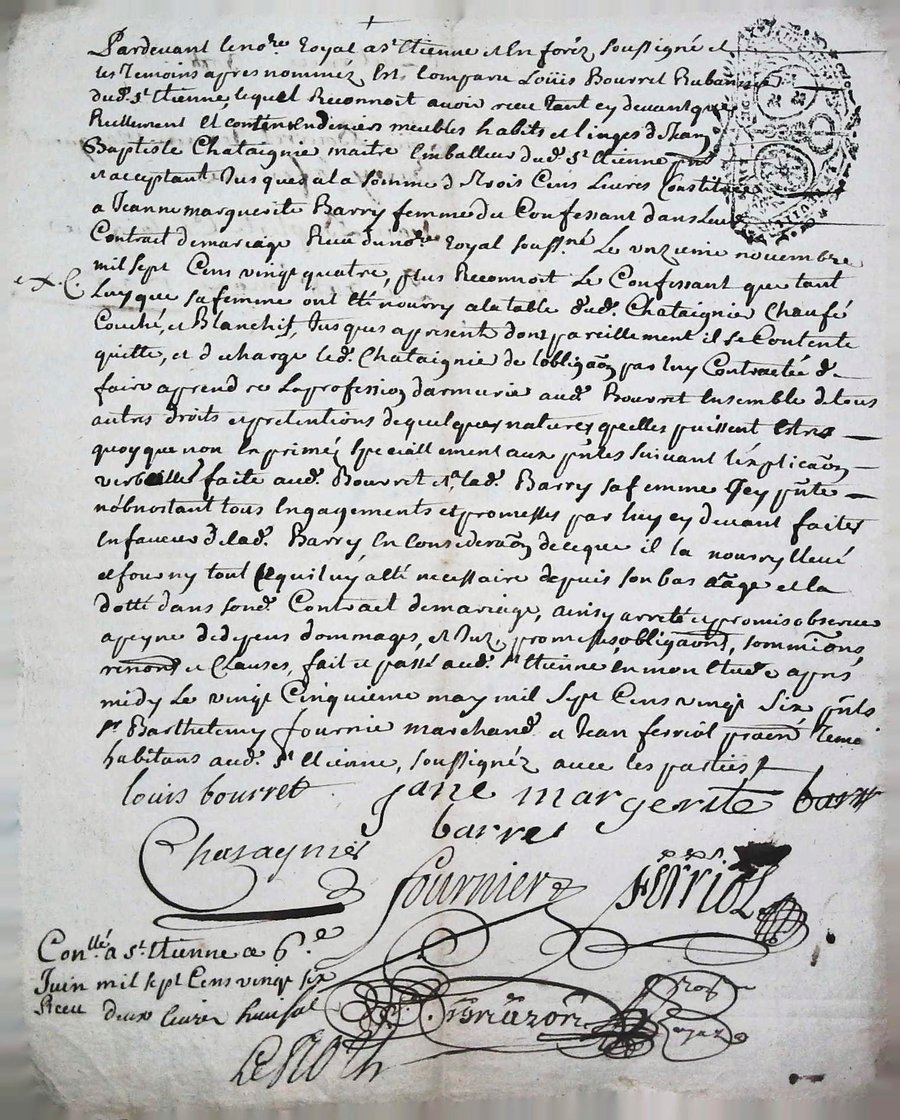 Pardevant le no.re Royal a S.t Etienne et En forez soussigné et
les temoins apres nommez Est Comparu Loüis Bourret Ruban
dud. S.t Etienne, lequel Reconnoit avoir receu tant cy devant que
Reellement et content en deniers meubles habits et linges de Jean
Baptiste Chataignie maitre Emballeur dud. S.t Etienne
et acceptant Jusques a la somme de trois Cens Livres Constituée
a Jeanne marguerite Barry femme du Confessant dans Leur
Contract de mariage Receu du no.re Royal souss.né Le unzieme novembre
mil sept Cens vingt quatre, plus Reconnoit Le Confessant que tant
Luy que sa femme ont été nourry a la table dud. Chataignier Chaufé
Couché, et Blanchis, Jusques a present dont pareillement il se Contente
quitte, et decharge led. Chataignie de lobliga.on par luy Contractée de
faire aprendre La profession darmurie aud. Bourret Ensemble de tous
autres droits et pretentions de quelques natures quelles puissent estre
quoyque non Exprimé speciallement aux p.ntes suivant lexplica.on
verballes faite aud. Bourret et a lad. Barry sa femme Icy p.nte
nobnostant tous Engagements et promesses par luy cy devant faites
en faveur de lad. Barry, En considera.on de ce que il la nourry Elevé
et fourny tout ce quil luy a été necessaire depuis son bas aage et la
dotté dans sond. Contract de mariage, ainsy arreté et promis observer
a peyne de depens dommages, et promesses obliga.ons, sommi.ons
renon.ons et Clauses, fait et passé aud. S.t Etienne, en mon Etude apres
midy Le vingt Cinquieme may mil sept Cens vingt six p.nts
s.r Barthelemy fournie marchand et Jean ferriol temo
habitans aud. S.t Etienne, soussignéz avec les parties
louis bourret Jane margerite barry
barret
Chatagnier
fournier ferriol
Con.llé a S.t Etienne ce 6.e
Juin mil sept Cens vingt six
Receu deux livres huit sol